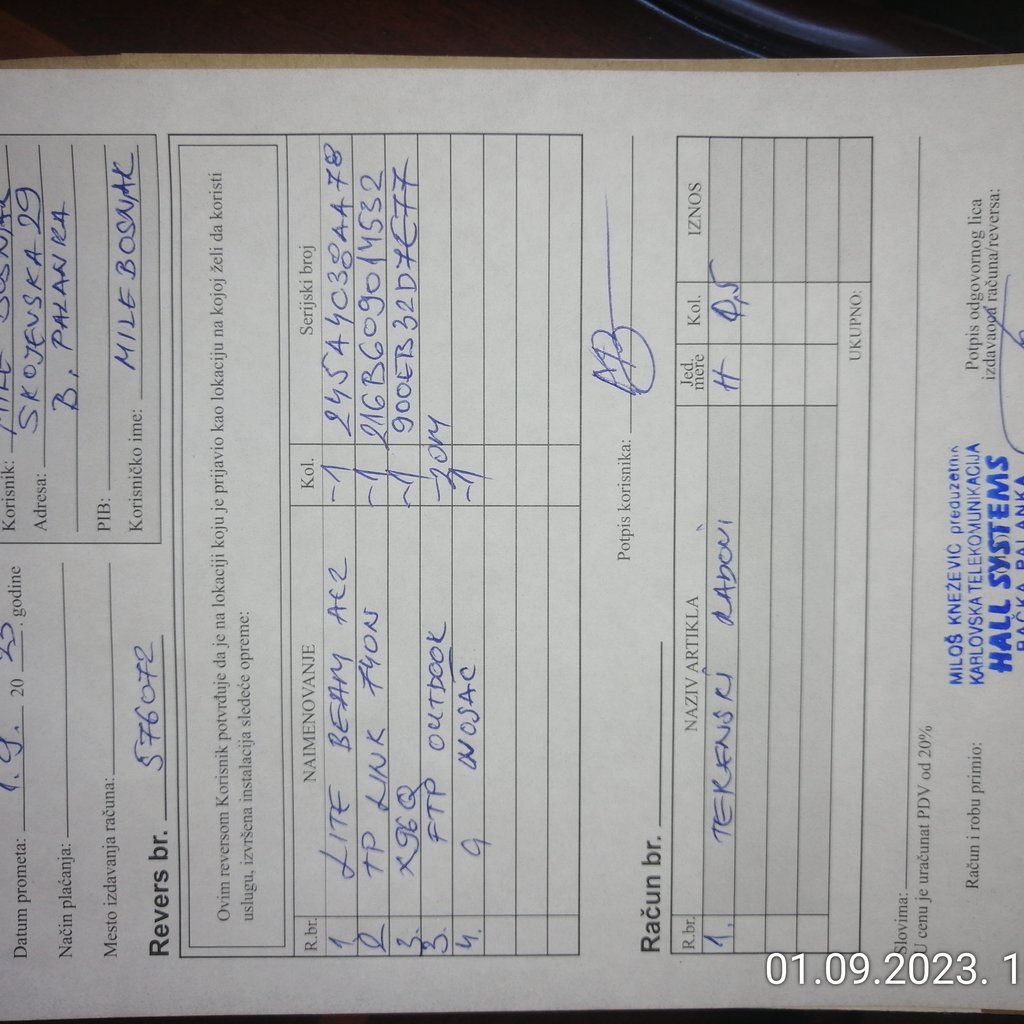 Datum prometa: 1. 9. 20 23. godine
Način plaćanja:
Mesto izdavanja računa:
Korisnik: MILE BOSNJAK
Adresa: SKOJEVSKA 29
B. PALANKA
PIB:
Korisničko ime: MILE BOSNJAK
Revers br. 576072
Ovim reversom Korisnik potvrđuje da je na lokaciji koju je prijavio kao lokaciju na kojoj želi da koristi
uslugu, izvršena instalacija sledeće opreme:
R.br. NAIMENOVANJE Kol. Serijski broj
1 LITE BEAM AC2 -1 245A4038AA78
2 TP LINK 740N -1 216B609014532
3. X96Q -1 900EB32D7E77
3. FTP OUTDOOR -20M
4. G NOSAC -1
Potpis korisnika:
Račun br.
R.br. NAZIV ARTIKLA Jed. mere Kol. IZNOS
1. TERENSKI RADOVI H 0,5
UKUPNO:
Slovima:
U cenu je uračunat PDV od 20%
Račun i robu primio:
MILOŠ KNEŽEVIĆ preduzetnik
KARLOVSKA TELEKOMUNIKACIJA
HALL SYSTEMS
BAČKA PALANKA
Potpis odgovornog lica
izdavaoca računa/reversa:
01.09.2023. 1